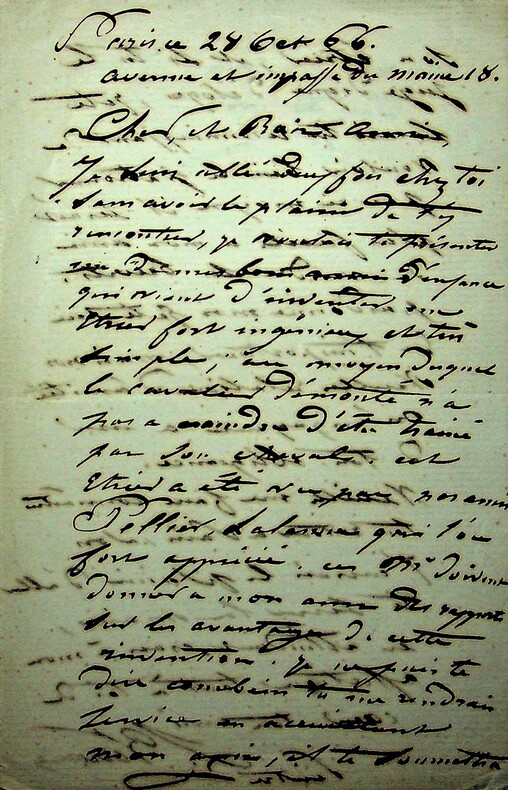 Paris ce 28 Oct 66.
avenue et impasse du maine 18.
Cher et Bon Ami
Je suis allé deux fois chez toi
sans avoir le plaisir de t'y
rencontrer, je voulais te présenter
un de mes bons amis d'enfance
qui vient d'inventer un
Etrier fort ingénieux et très
simple, au moyen duquel
le cavalier démonté n'a
pas a craindre d'être trainé
par son cheval. cet
Etrier a été vu par nos amis
Pellier qui l'on
fort apprécié. ces Mrs doivent
donner a mon ami des rapports
sur les avantages de cette
invention. Je ne puis te
dire combien tu me rendrais
service en accueillant
mon ami, il te soumettra